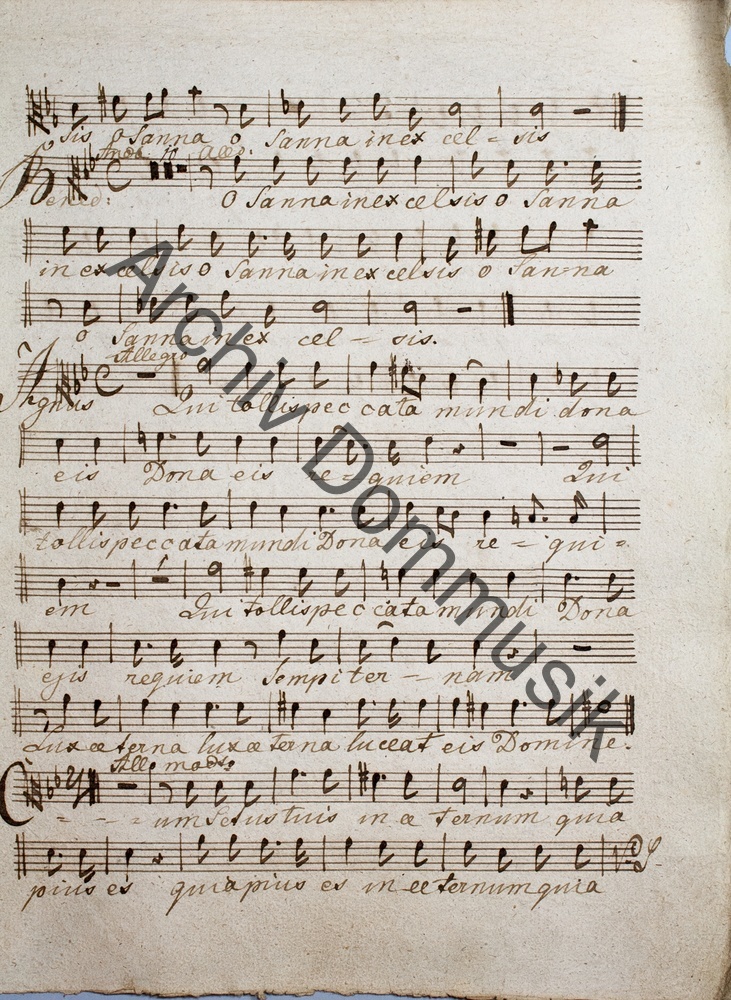 sis o Sanna o Sanna in ex cel = sis
Bened: O Sanna in ex celsis o Sanna
in ex celsis o Sanna in ex celsis o Sanna
o Sanna in ex cel = sis.
Allegro
Agnus Qui tollis peccata mundi dona
eis Dona eis re = quiem Qui
tollis peccata mundi Dona eis re = qui =
em Qui tollis peccata mundi Dona
ejs requiem Sempiter = nam
Lux æterna lux æterna luceat eis Domine.
Allo modto
C = = = um Sctus tuis in æternum quia
pius es quia pius es in æternum quia
Archiv Dommusik